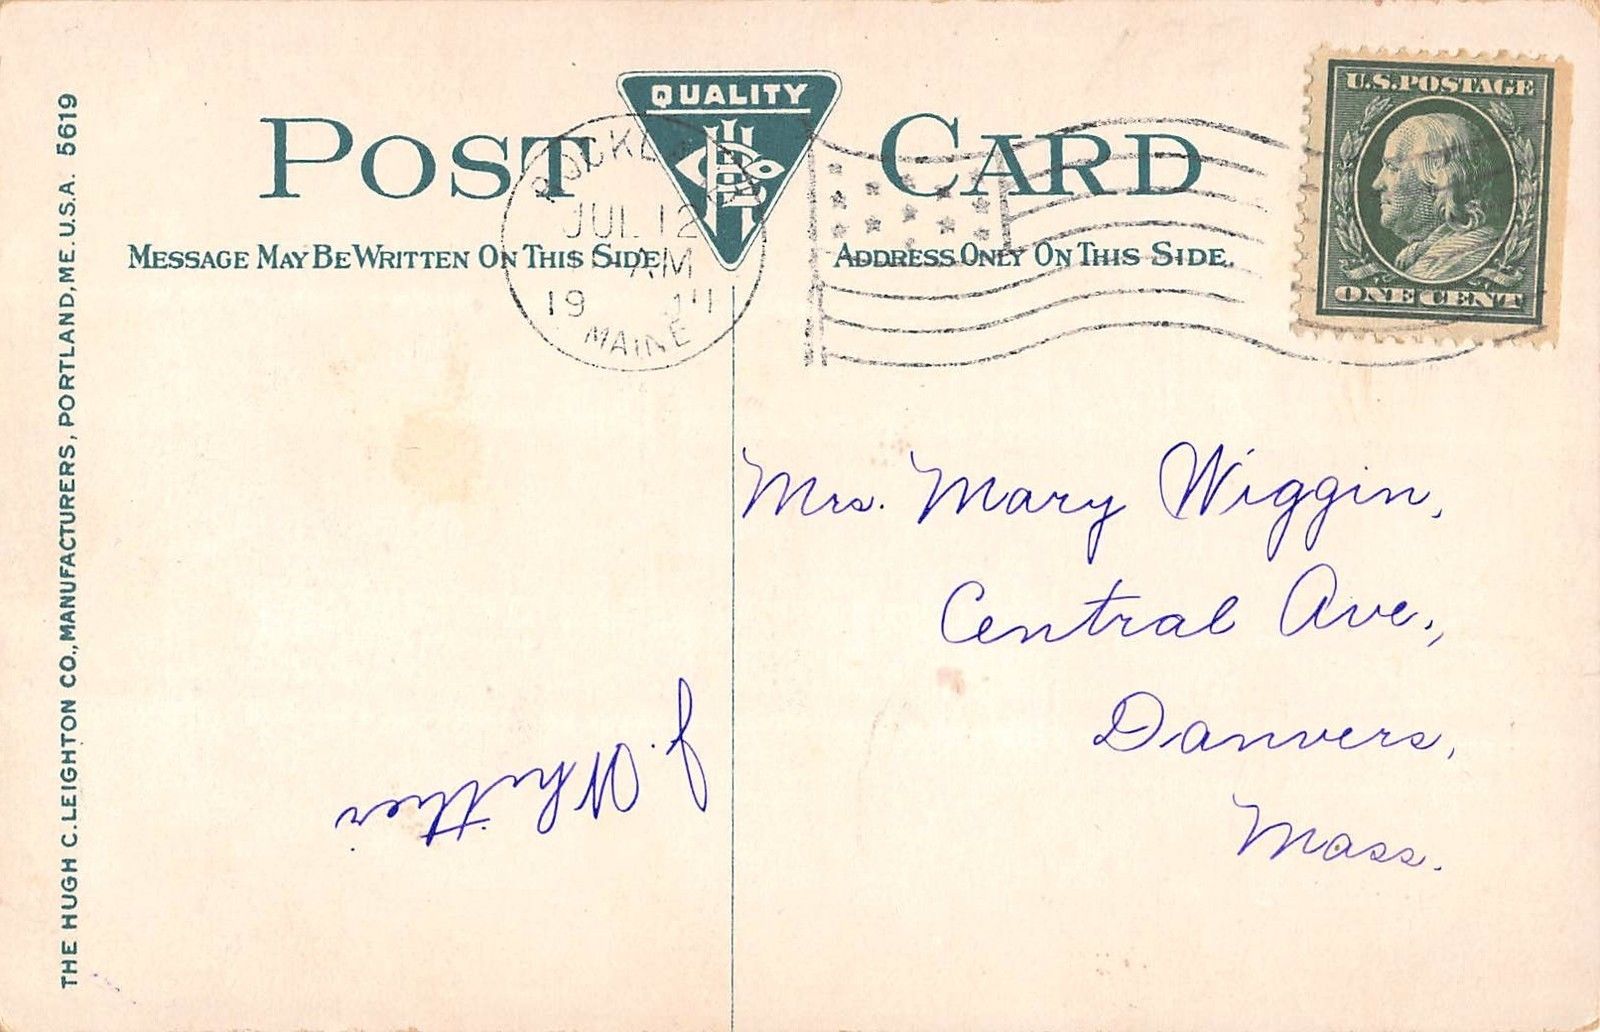 THE HUGH C. LEIGHTON CO., MANUFACTURERS, PORTLAND, ME. U.S.A. 5619
POST CARD
QUALITY
MESSAGE MAY BE WRITTEN ON THIS SIDE
ADDRESS ONLY ON THIS SIDE.
JUL 12
AM
19 11
MAINE
U.S. POSTAGE
ONE CENT
Mrs. Mary Wiggin,
Central Ave.,
Danvers,
Mass.
J. Whittier